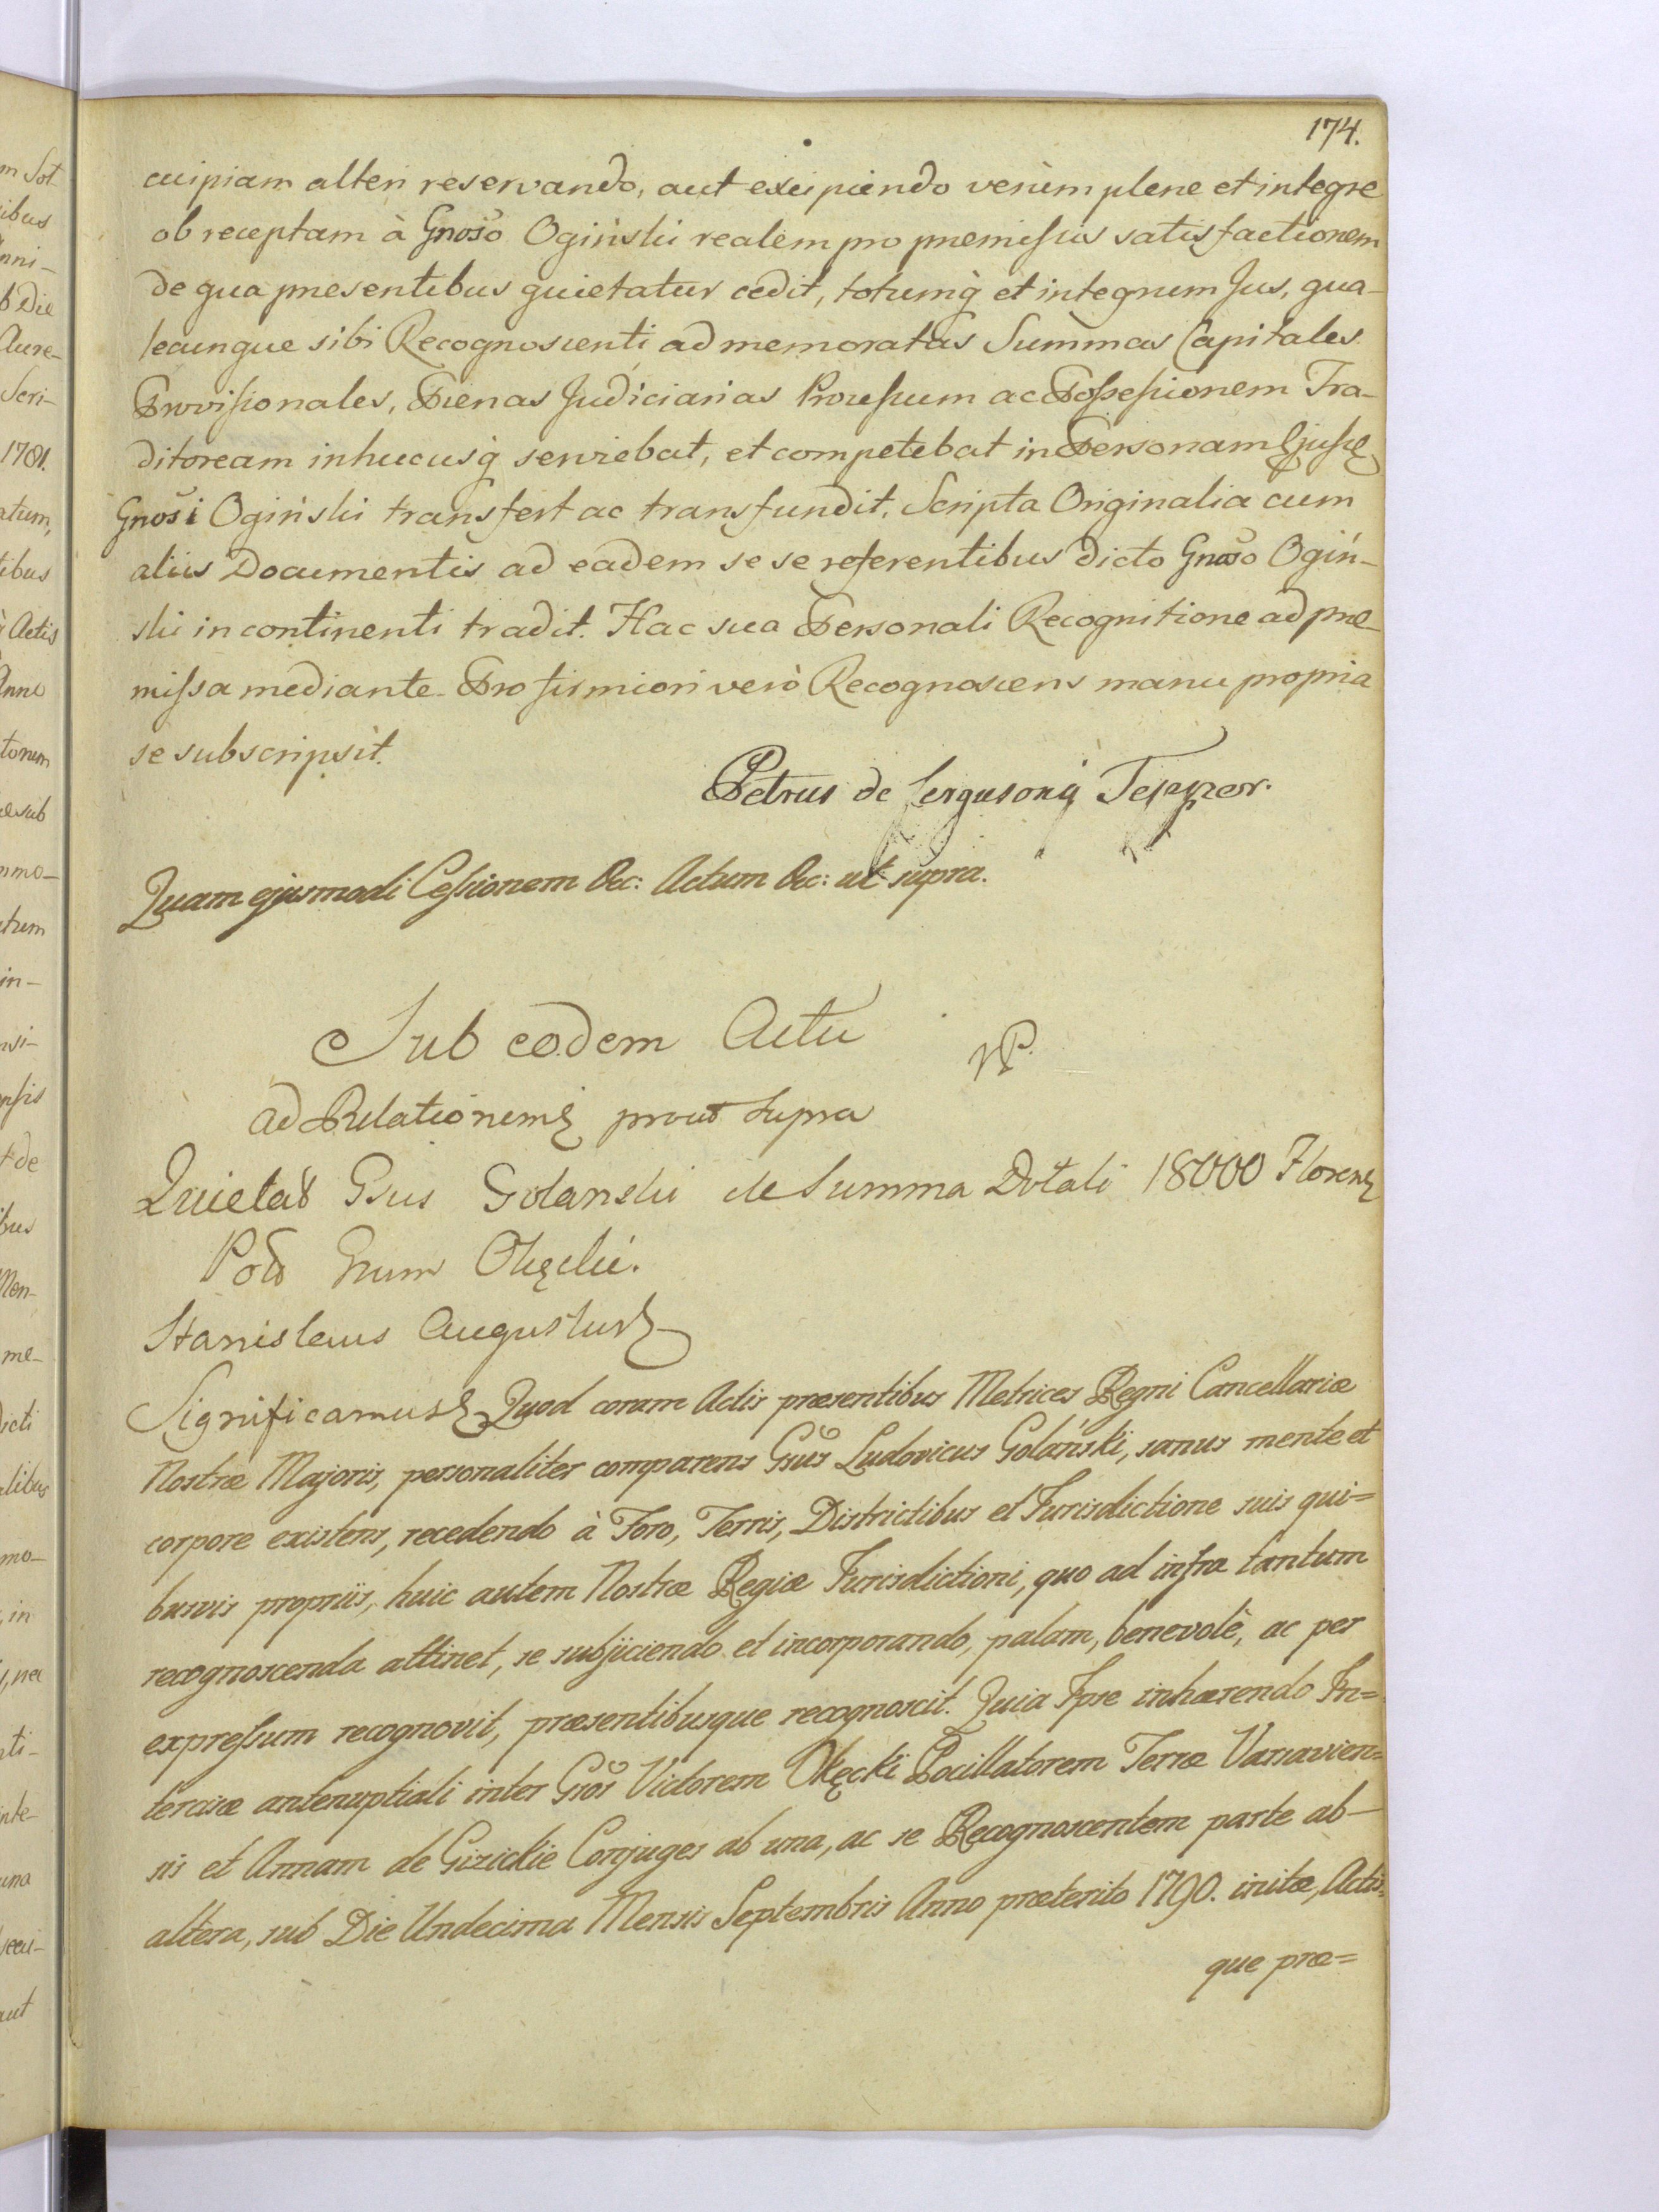 174.
cuipiam alteri reservando, aut excipiendo verùm plene et integre
ob receptam à Gnoso Ogiński realem pro premissis satisfactionem
de qua presentibus quietatur cedit, totumq et integrum Jus, qua-
lecunque sibi Recognoscenti ad memoratas Summas Capitales
Provisionales, Pœnas Judiciarias Processum ac Possessionem Tra-
ditoream inhucusq serviebat, et competebat in Personam Ejusde
Gnosi Ogiński transfert ac transfundit. Scripta Originalia cum
aliis Documentis ad eadem se se referentibus dicto Gnoso Ogiń-
ski in continenti tradit. Hac sua Personali Recognitione ad pre-
missa mediante. Pro firmiori verò Recognoscens manu propria
se subscripsit.
Petrus de Fergusonq Tepper.
Quam ejusmodi Cessionem &c: Actum &c: ut supra.
Sub eodem Actu
ad Relationem prout supra
Quietat Gsus Golanski de Summa Dotali 18000 Floren
Gsum Okęcki.
Stanislaus Augustus
Significamus Quod coram Actis præsentibus Metrices Regni Cancellariæ
Nostræ Majoris, personaliter comparens Gsus Ludovicus Golański, sanus mente et
corpore existens, recedendo à Foro, Terris, Districtibus et Jurisdictione suis qui=
busvis propriis, huic autem Nostræ Regiæ Jurisdictioni, quo ad infra tantum
recognoscenda attinet, se subjiciendo et incorporando, palam, benevolè, ac per
expressum recognovit, præsentibusque recognoscit. Quia Ipse inhærendo In=
tercisæ antenuptiali inter Gsos Victorem Okęcki Pocillatorem Terræ Varsavien=
sis et Annam de Gizickie Conjuges ab una, ac se Recognoscentem parte ab-
altera, sub Die Undecima Mensis Septembris Anno præterito 1790. initæ, Actis=
que præ=